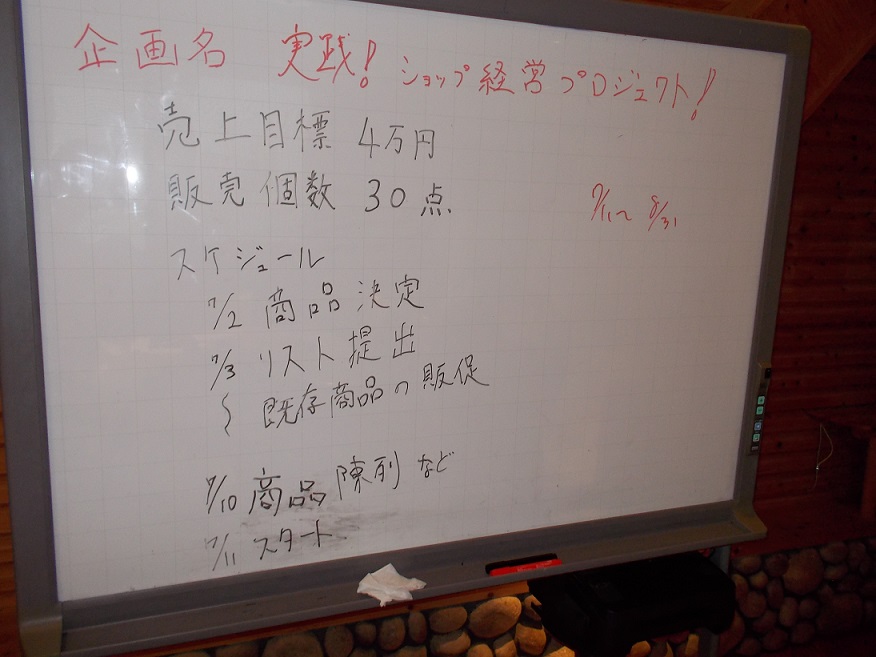 企画名 実践! ショップ経営プロジェクト!
売上目標 4万円
販売個数 30点
7/11〜 8/31
スケジュール
7/2 商品決定
7/3 リスト提出
〜 既存商品の販促
7/10 商品陳列など
7/11 スタート